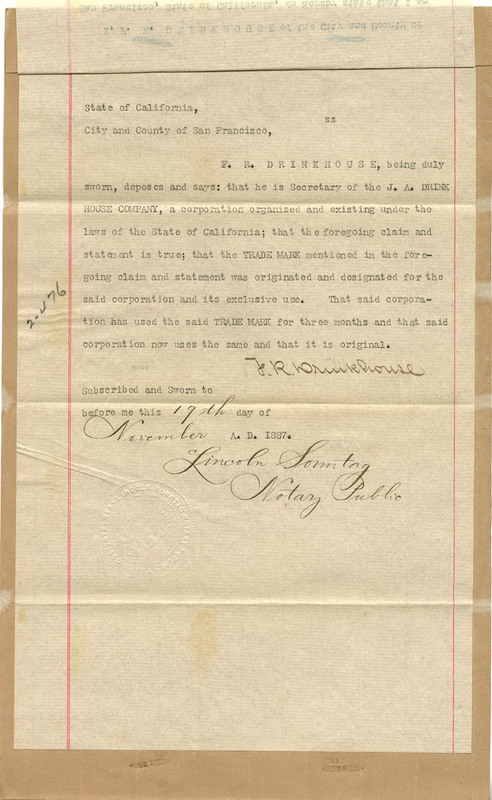 San Francisco, State of California, do hereby state that I am
I, F. R. D R I N K H O U S E of the City and County of
State of California,
ss
City and County of San Francisco,
F. R. D R I N K H O U S E, being duly
sworn, deposes and says: that he is Secretary of the J. A. DRINK
HOUSE COMPANY, a corporation organized and existing under the
laws of the State of California; that the foregoing claim and
statement is true; that the TRADE MARK mentioned in the fore-
going claim and statement was originated and designated for the
said corporation and its exclusive use. That said corpora-
tion has used the said TRADE MARK for three months and that said
corporation now uses the same and that it is original.
2-476
F. R. Drinkhouse
Subscribed and Sworn to
before me this 19th day of
November A. D. 1887.
Lincoln Sonntag
Notary Public